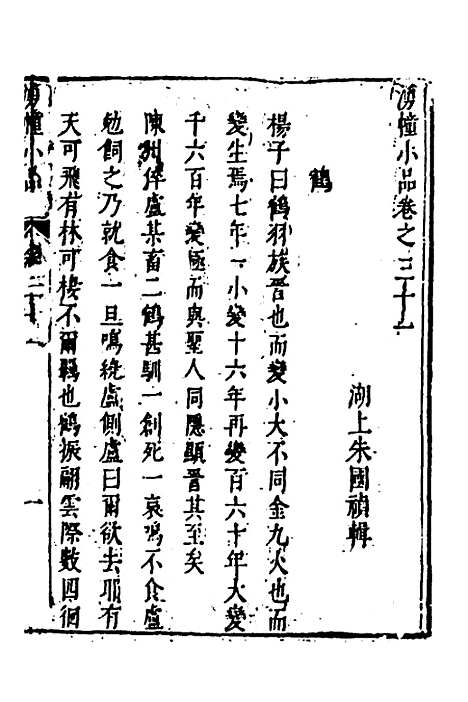 湧幢小品卷之三十一
湖上朱國禎輯
鶴
楊子曰鶴羽族晉也而變小大不同金九火也而
變生焉七年一小變十六年再變百六十年大變
千六百年變極而與聖人同隱顯晉其至矣
陳州倅盧某畜二鶴甚馴一創死一哀鳴不食盧
勉飼之乃就食一旦鳴繞盧側盧曰爾欲去耶有
天可飛有林可棲不爾羈也鶴振翮雲際數四徊
湧幢小品
卷三十一
一